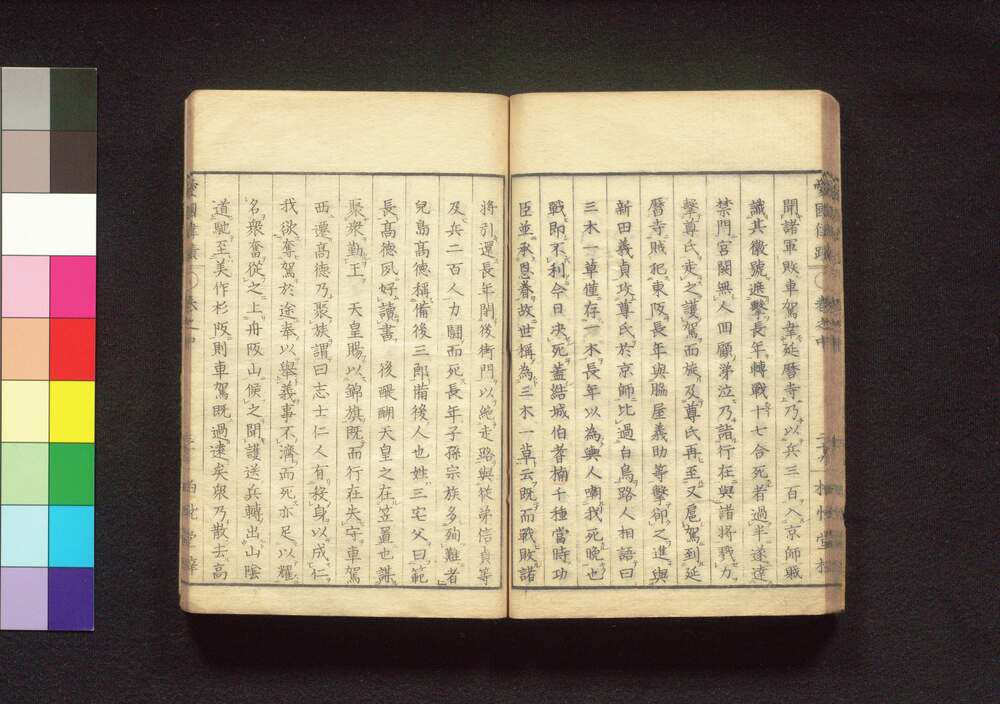 聞諸軍敗車駕幸延曆寺乃以兵三百入京師賊
識其徽號遮擊長年轉戰十七合死者過半遂達
禁門宮闕無人回顧涕泣乃詣行在與諸將戮力
擊尊氏走之護駕而旋及尊氏再至又扈駕到延
曆寺賊犯東阪長年與脇屋義助等擊卻之進與
新田義貞攻尊氏於京師比過白鳥路人相語曰
三木一草僅存一木長年以為與人嘲我死晚也
戰即不利今日決死蓋結城伯耆楠千種當時功
臣並承恩眷故世稱為三木一草云既而戰敗諸
將引還長年閉後衛門以絶走路與從弟信貞等
及兵二百人力鬪而死長年子孫宗族多殉難者
兒島高德稱備後三郎備後人也姓三宅父曰範
長高德夙好讀書　後醍醐天皇之在笠置也謀
聚衆勤王　天皇賜以錦旗既而行在失守車駕
西遷高德乃聚族謂曰志士仁人有殺身以成仁
我欲奪駕於途奉以舉義事不濟而死亦足以耀
名衆奮從之上舟阪山候之聞護送兵轉出山陰
道馳至美作杉阪則車駕既過遠矣衆乃散去高